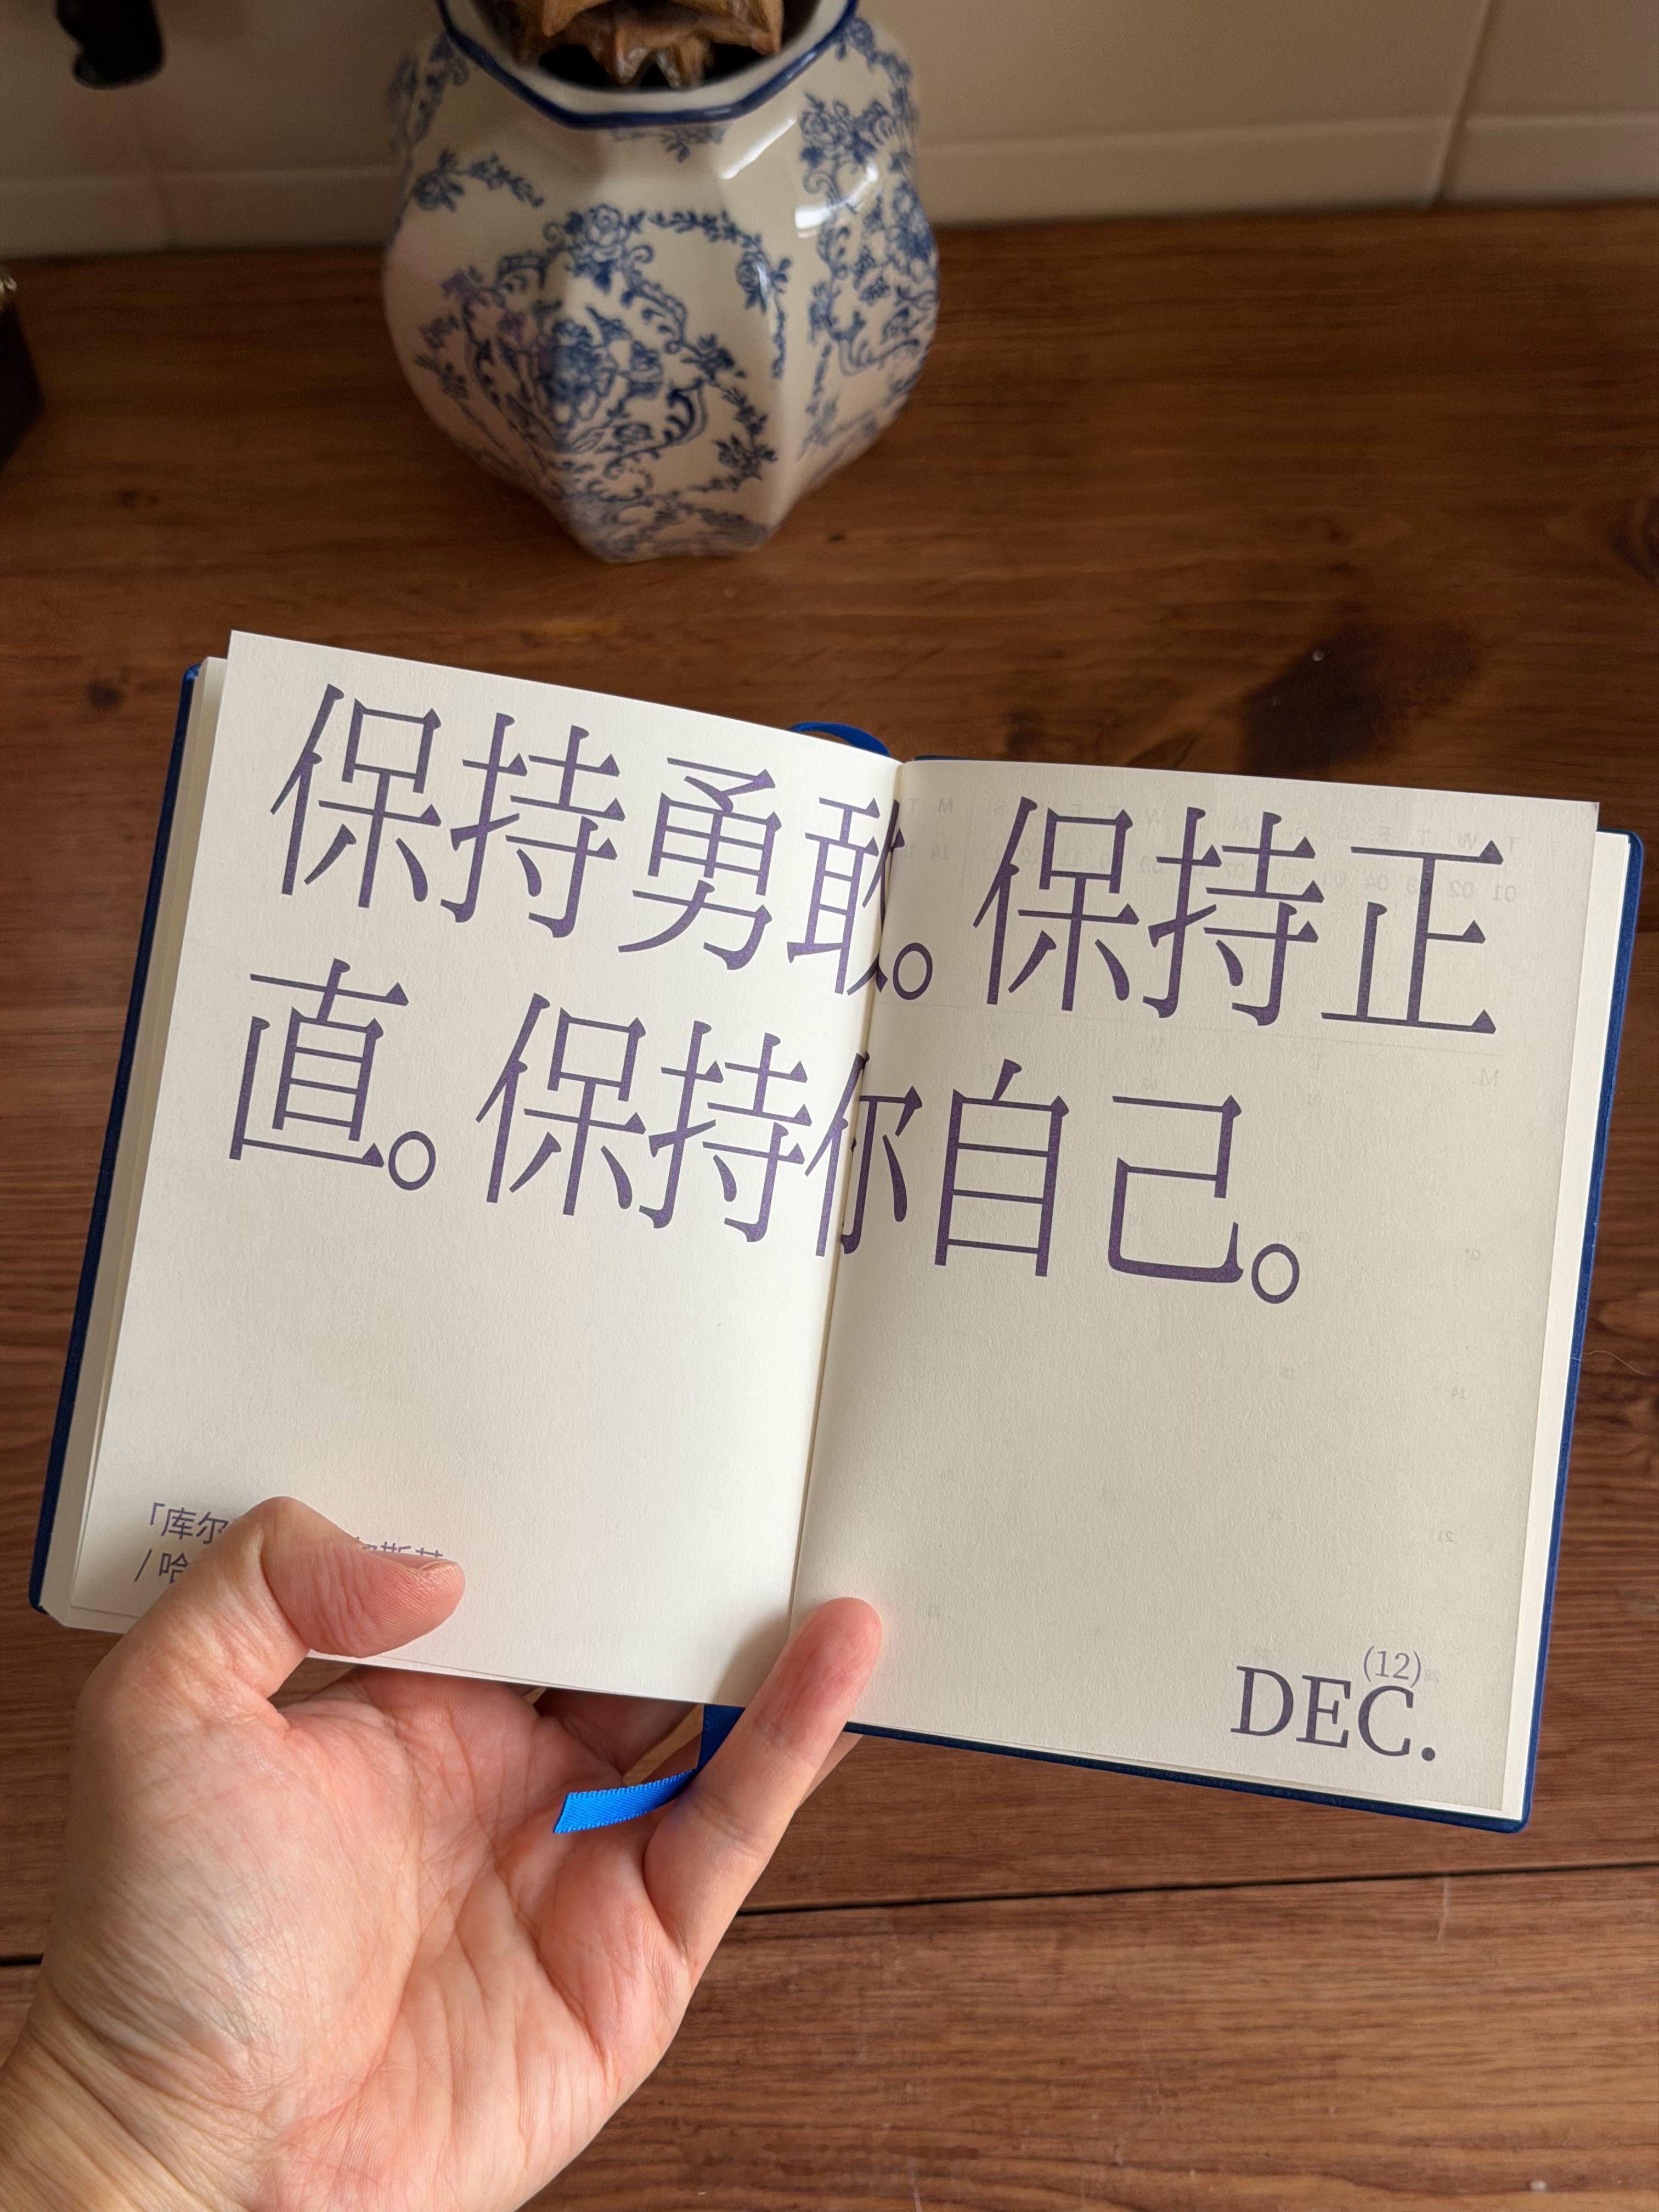 保持勇敢。保持正
直。保持你自己。
「库尔
/ 哈
(12)
DEC.